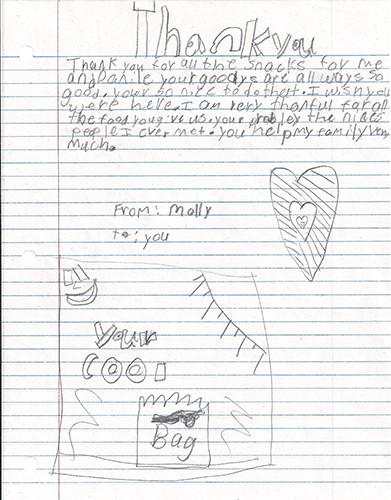 Thank you
Thank you for all the snacks for me
and Danile your goodys are all ways so
good. your so nice to do thett. I wish you
were here. I am very thanful for all
the food you give us. your probley the nices
people I ever met. you help my family very
much.
From: Molly
to: you
your
COOl
Bag